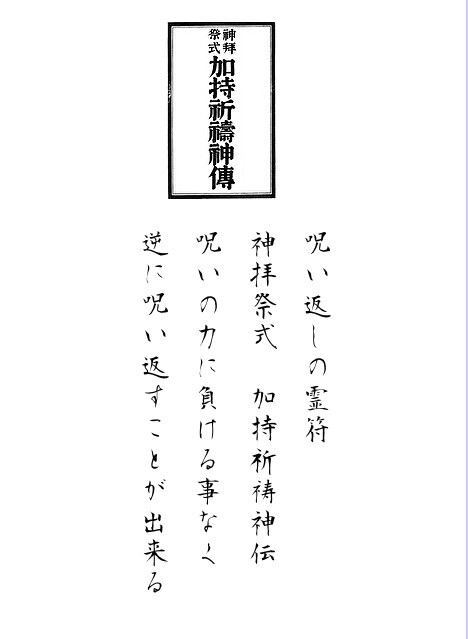 神拜
祭式
加持祈禱神傳
呪い返しの霊符
神拝祭式　加持祈祷神伝
呪いの力に負ける事なく
逆に呪い返すことが出来る